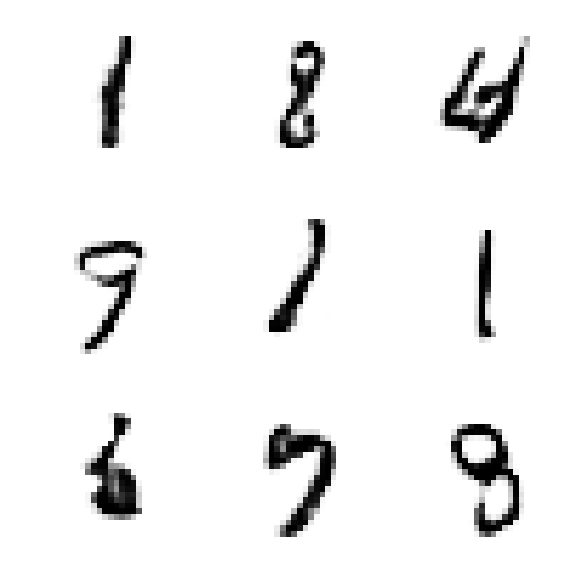 1 8 4
9 1 1
6 7 8